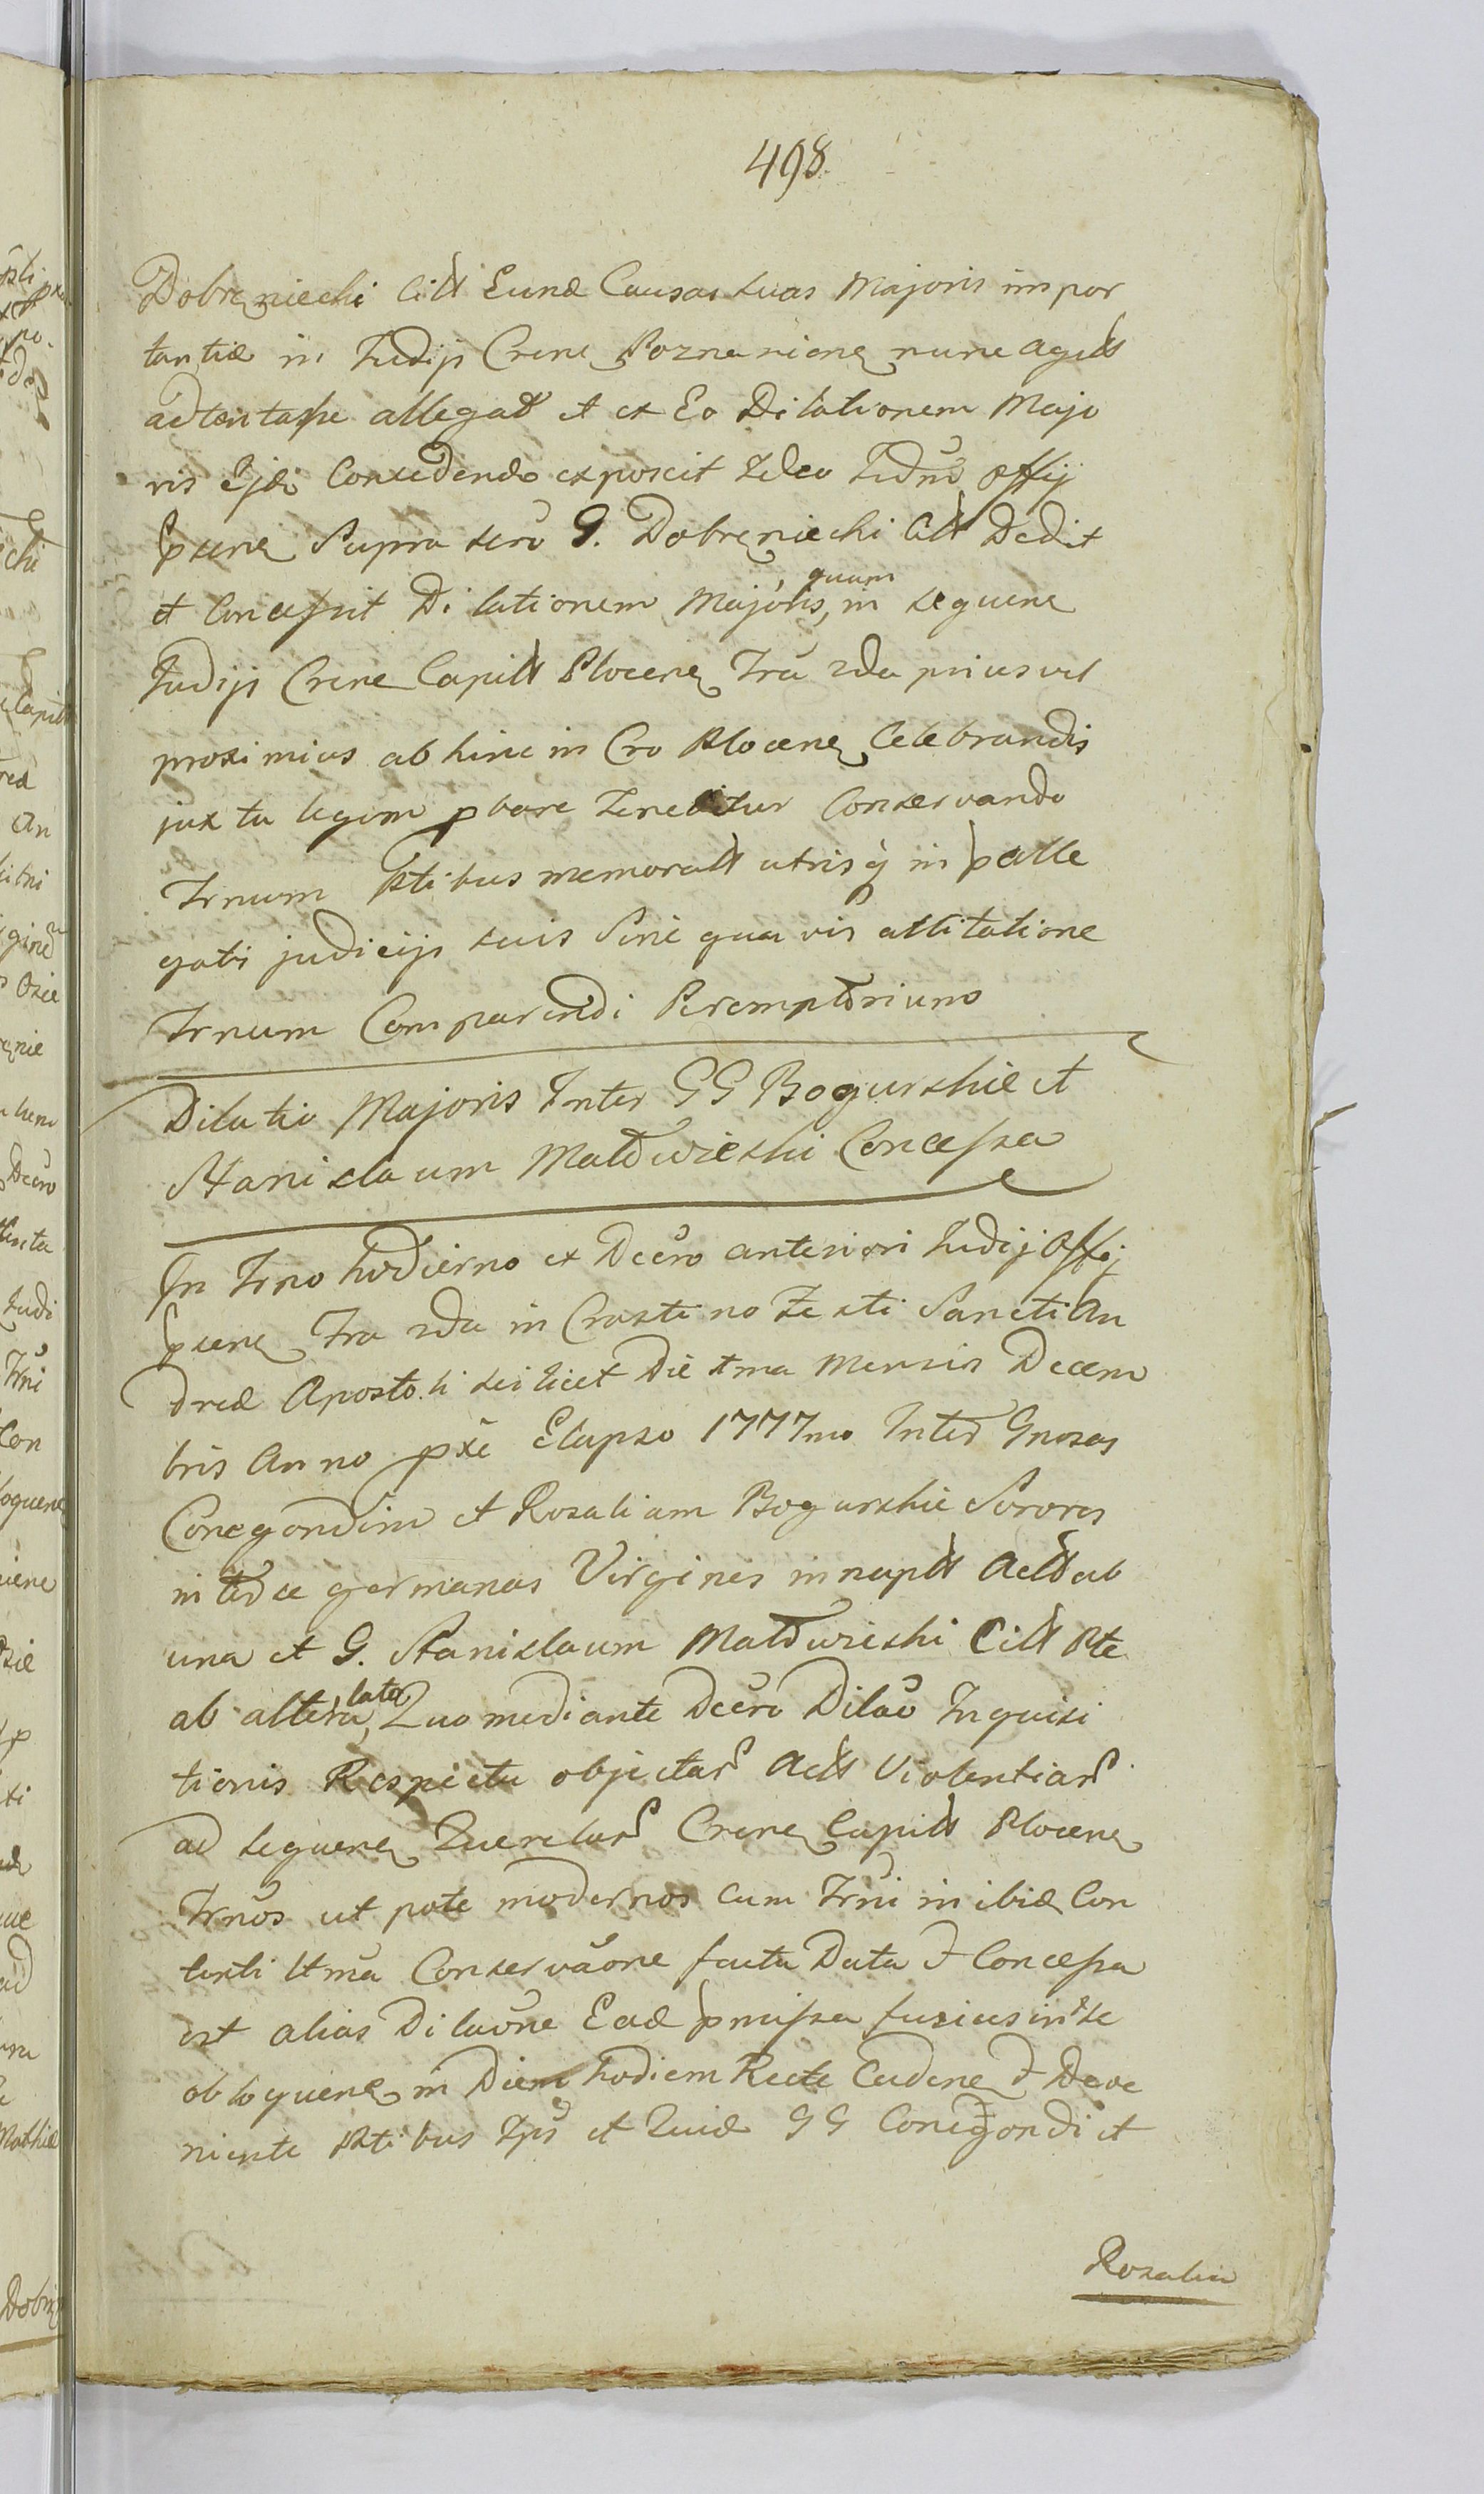 498.
Dobrzniecki Citt Eund Causas suas Majoris impor
tantiæ in Judijs Crens Poznaniens nunc agitt
adtentasse allegat et ex Eo Dilationem Majo
ris Ejdi Concedendo exposcit Ideo Judm Offij
psens Supra scro G. Dobrzniecki Citt Dedit
et Concessit Dilationem Majoris, quam in sequens
Judijs Crens Capitt Plocens Fra 2da prius vel
proximius ab hinc in Cro Plocens Celebrandis
juxta legem pbare tenebitur Conservando
Trnum Ptibus memoratt utrisq in palle
gatis judicijs suis Sine quavis attitatione
Trnum Comparendi Peremptorium
Dilatio Majoris Inter GG Bogurskie et
Stanislaum Mattwieski Concessa
In Trno hodierno ex Dcero anteriori Judij Offij
psens Fra 2da in Crastino Festi Sancti An
dreæ Apostoli scilicet Die 1ma Mensis Decem
bris Anno pxe Elapso 1777mo Inter Gnosas
Conegondim et Rosaliam Bogurskie Sorores
inter se germanas Virgines innuptt Actt ab
una et G. Stanislaum Mattwieski Citt Pte
ab altera, lata Quo mediante Dcero Dilao Inquisi
tionis Respectu objectar Actt Violentiar
ad sequens Querelar Crens Capitt Plocens
Trnos ut pote modernos cum Trni in ibid Con
tenti Attma Conservaone facta Data & Concessa
est alias Dilaone Ead pmissa fusius in se
obloquens in Diem hodiern Recte Cadens & Deve
niente Ptibus Ips et Quid GG Conegondi et
Rosalia